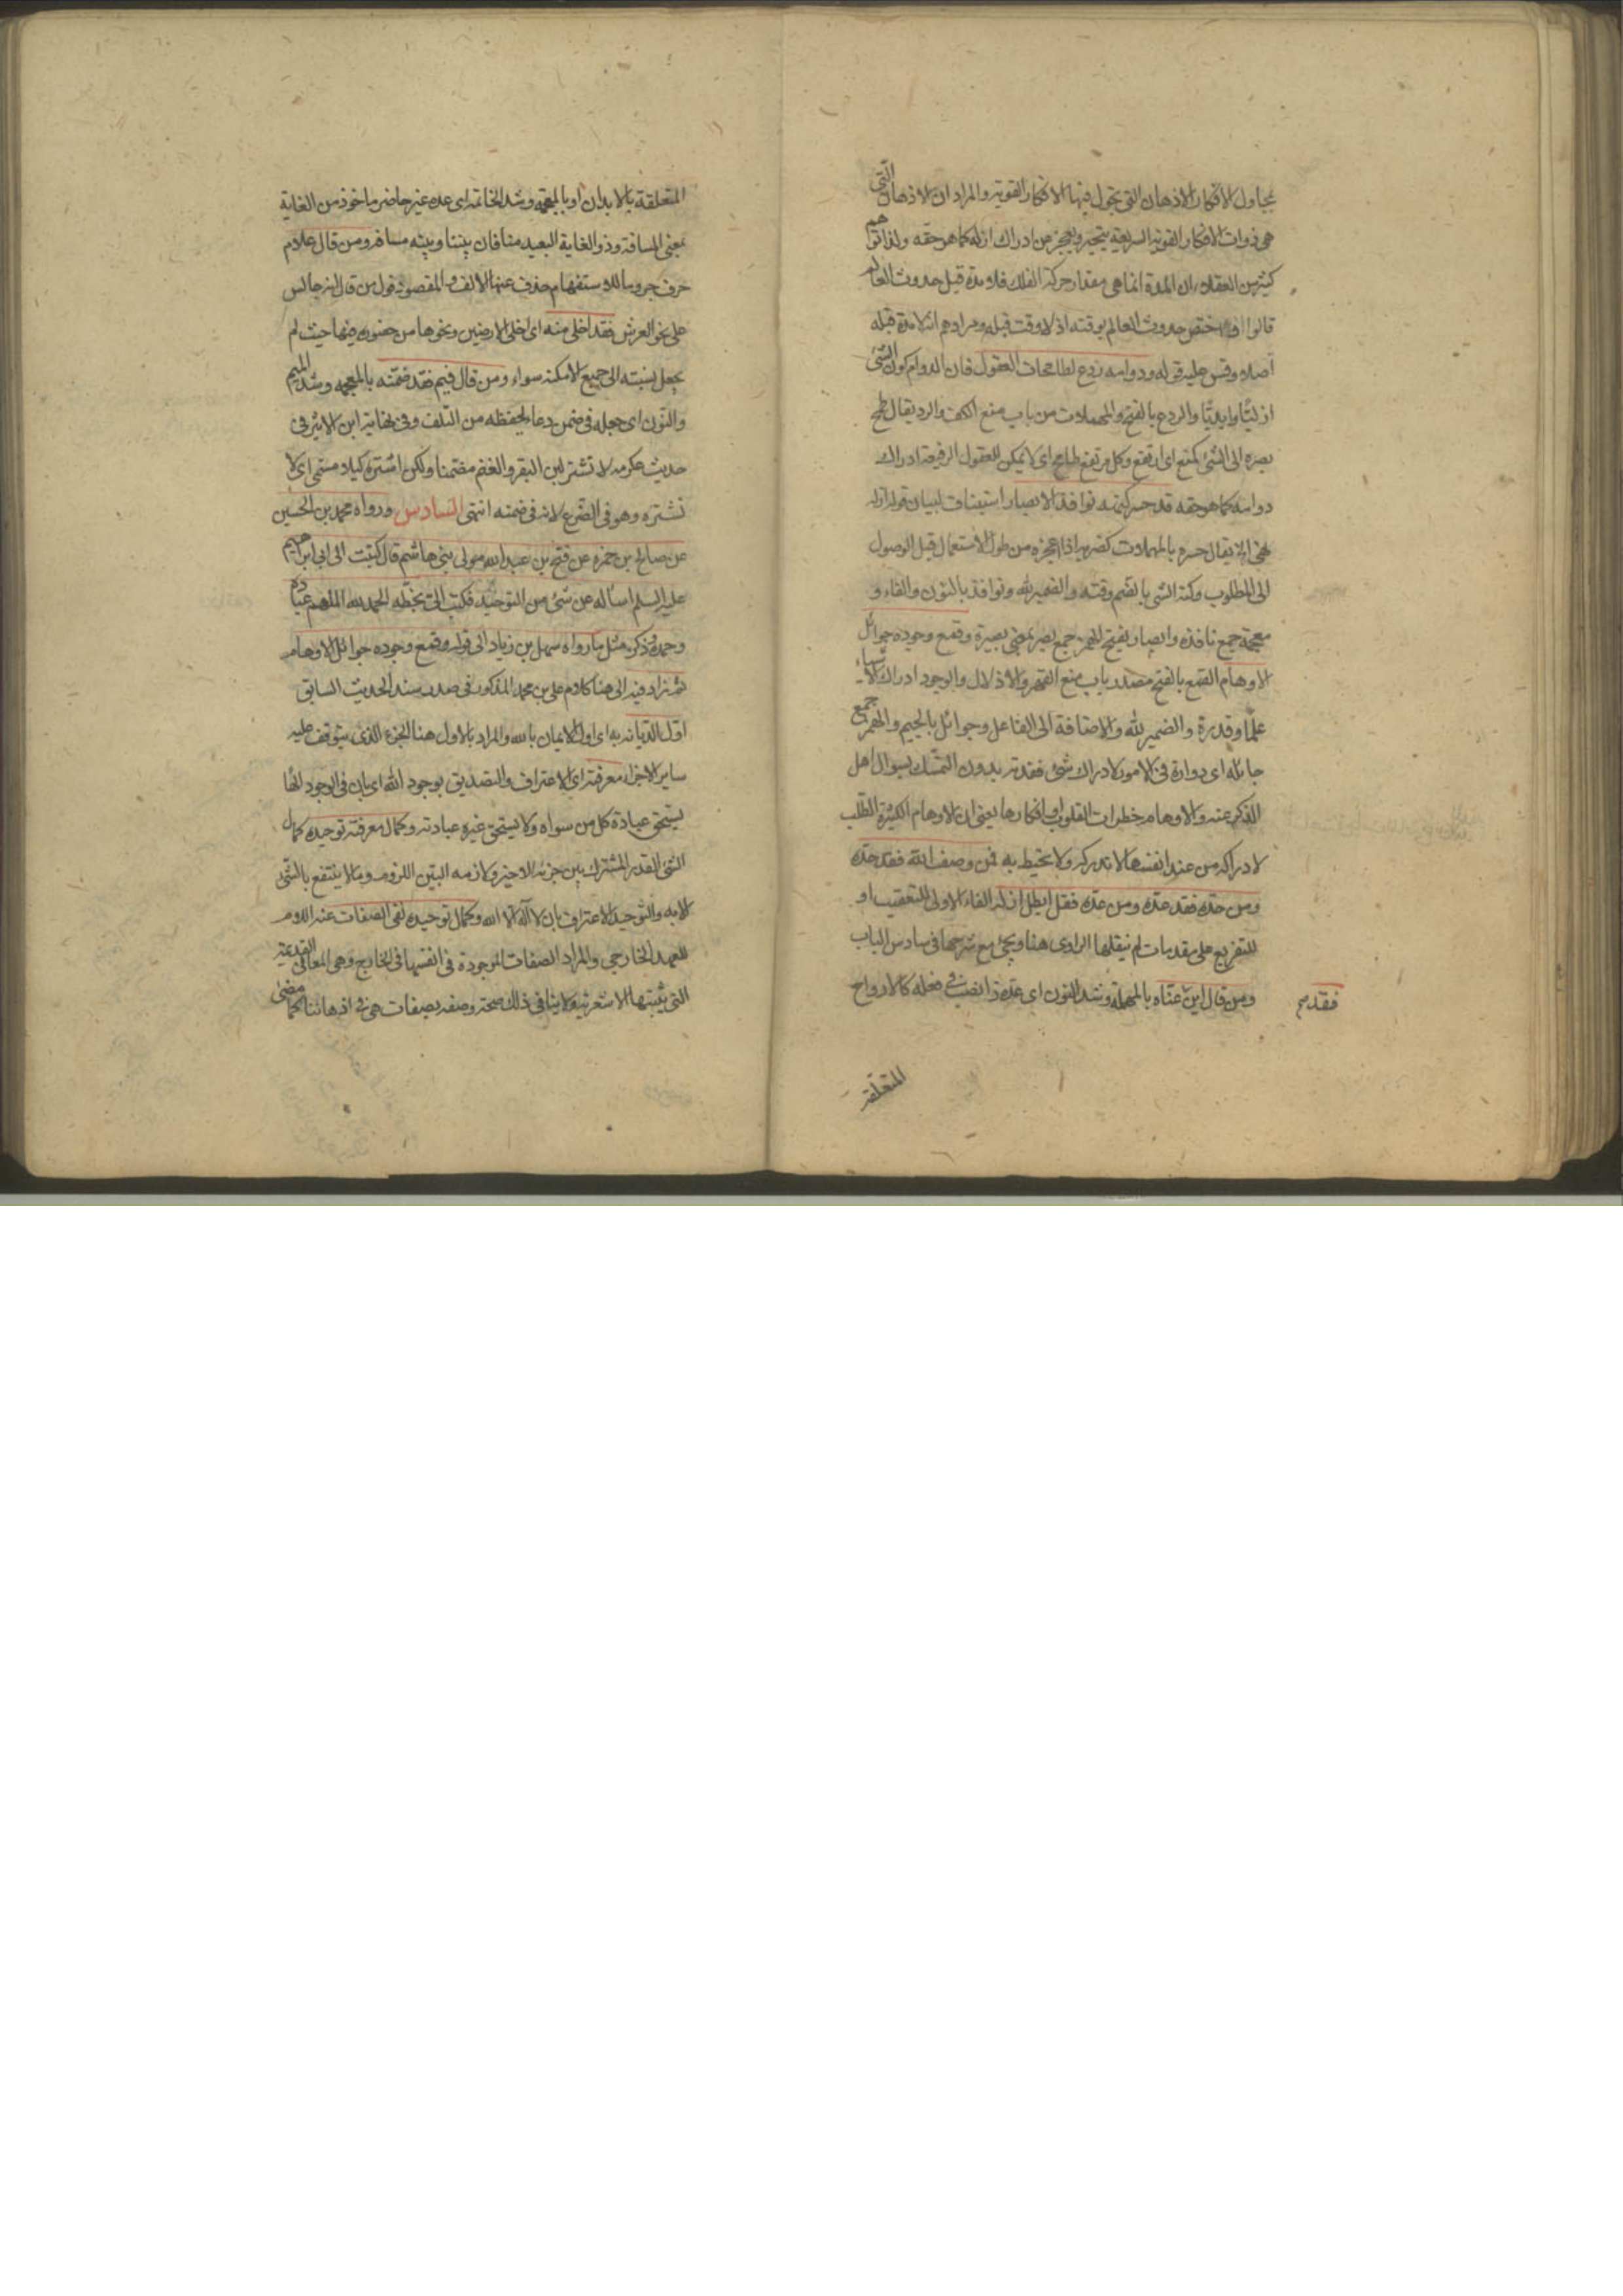 مجاول الافكار الاذهان التي تجول فيها الافكار القوية والمراد ان الاذهان التي
هي ذوات الافكار القوية السريعة يتحير ويعجز من ادراك ازله كما هو حقه ولذا توهم
كثير من العقلاء ان المدة انما هي مقدار حركة الفلك فلا مدة قبل حدوث العالم
قالوا اختص حدوث العالم بوقته اذ لا وقت قبله ومرادهم انه لا مدة قبله
اصلا وقس عليه قوله ودوامه ردع لطامحات العقول فان الدوام كون الشئ
ازليًا وابديًا والردع بالفتح والمهملات من باب منع الكف والرد يقال طمح
بصره الى الشئ كمنع اي ارتفع وكل مرتفع طامح اي لا يمكن للعقول الرفيعة ادراك
دوامه كما هو حقه قد حسر كنهه نوافذ الابصار استيناف لبيان قوله ازله
الخ يقال حسره بالمهملات كضربه اذا اعجزه من طول الاستعمال قبل الوصول
الى المطلوب وكنه الشي بالضم وقته والضمير لله ونوافذ بالنون والفاء و
معجمة جمع نافذه وابصار بفتح الهمزة جمع بصر بمعنى بصيرة وقمع وجوده جوائل
الاوهام القمع بالفتح مصدر باب منع القهر والاذلال والوجود ادراك الاشياء
علمًا وقدرة والضمير لله والاضافة الى الفاعل وجوائل بالجيم والهمز جمع
جائله اي دوارة في الامور لادراك شئ فقدته بدون التمسك بسوال اهل
الذكر عنه والاوهام خطرات القلوب وافكارها يعني ان الاوهام الكثيرة التطلب
لادراكه من عند انفسها لا تدركه ولا تحيط به فمن وصف الله فقد حده
ومن حده فقد عده ومن عده فقد ابطل ازله الفاء الاولى للتعقيب او
للتفريع على مقدمات لم ينقلها الراوي هنا ويجئ مع شرحها في سادس الباب
ومن قال اين عناه بالمهملة وشد النون اي عده ذا نصب في فعله كالارواح
فقد
المتعلقة
المتعلقة بالابدان او بالمعجمة وشد الخاتمه اي عده غير حاضر ماخوذ من الغاية
بمعنى المسافة وذو الغاية البعيد منا فان بيننا وبينه مسافة ومن قال علام
حرف جر وما للاستفهام حذف عنها الالف والمقصود قول من قال انه جالس
على نحو العرش فقد اخلى منه اي اخلى الارضين ونحوها من حضوره فيها حيث لم
يجعل نسبته الى جميع الامكنة سواء ومن قال فيم فقد ضمنه بالمعجمه وشد الميم
والنون اي جعله في ضمن وعاء لحفظه من التلف وفي نهاية ابن الاثير في
حديث عكرمه لا تشتر لبن البقر والغنم مضمنا ولكن اشتره كيلا مسمى اي لا
تشتره وهو في الضرع لانه في ضمنه انتهى السادس ورواه محمد بن الحسين
عن صالح بن حمزه عن فتح بن عبد الله مولى بني هاشم قال كتبت الى ابي ابراهيم
عليه السلم اساله عن شئ من التوحيد فكتب الي بخطه الحمد لله الملهم عباده
وحمده وذكر مثل ما رواه سهل بن زياد الى قوله وقمع وجوده جوائل الاوهام
ثم زاد فيه الى هنا كلام علي بن محمد المذكور في صدر سند الحديث السابق
اول الديانه به اي اول الايمان بالله والمراد بالاول هنا الجزء الذي يتوقف عليه
ساير الاجزاء معرفته اي الاعتراف والتصديق بوجود الله اي بان في الوجود الها
يستحق عبادة كل من سواه ولا يستحق غيره عبادته وكمال معرفته توحيده كمال
الشئ القدر المشترك بين جزئه الاخير ولازمه البين اللزوم وما لا ينتفع بالشئ
الا به والتوحيد الاعتراف بان لا اله الا الله وكمال توحيده نفي الصفات عنه اللام
للعهد الخارجي والمراد الصفات الموجودة في انفسها في الخارج وهي المعاني القديمة
التي يثبتها الاشعرية ولا ينافي ذلك صحة وصفه بصفات هي في اذهاننا كما مضى